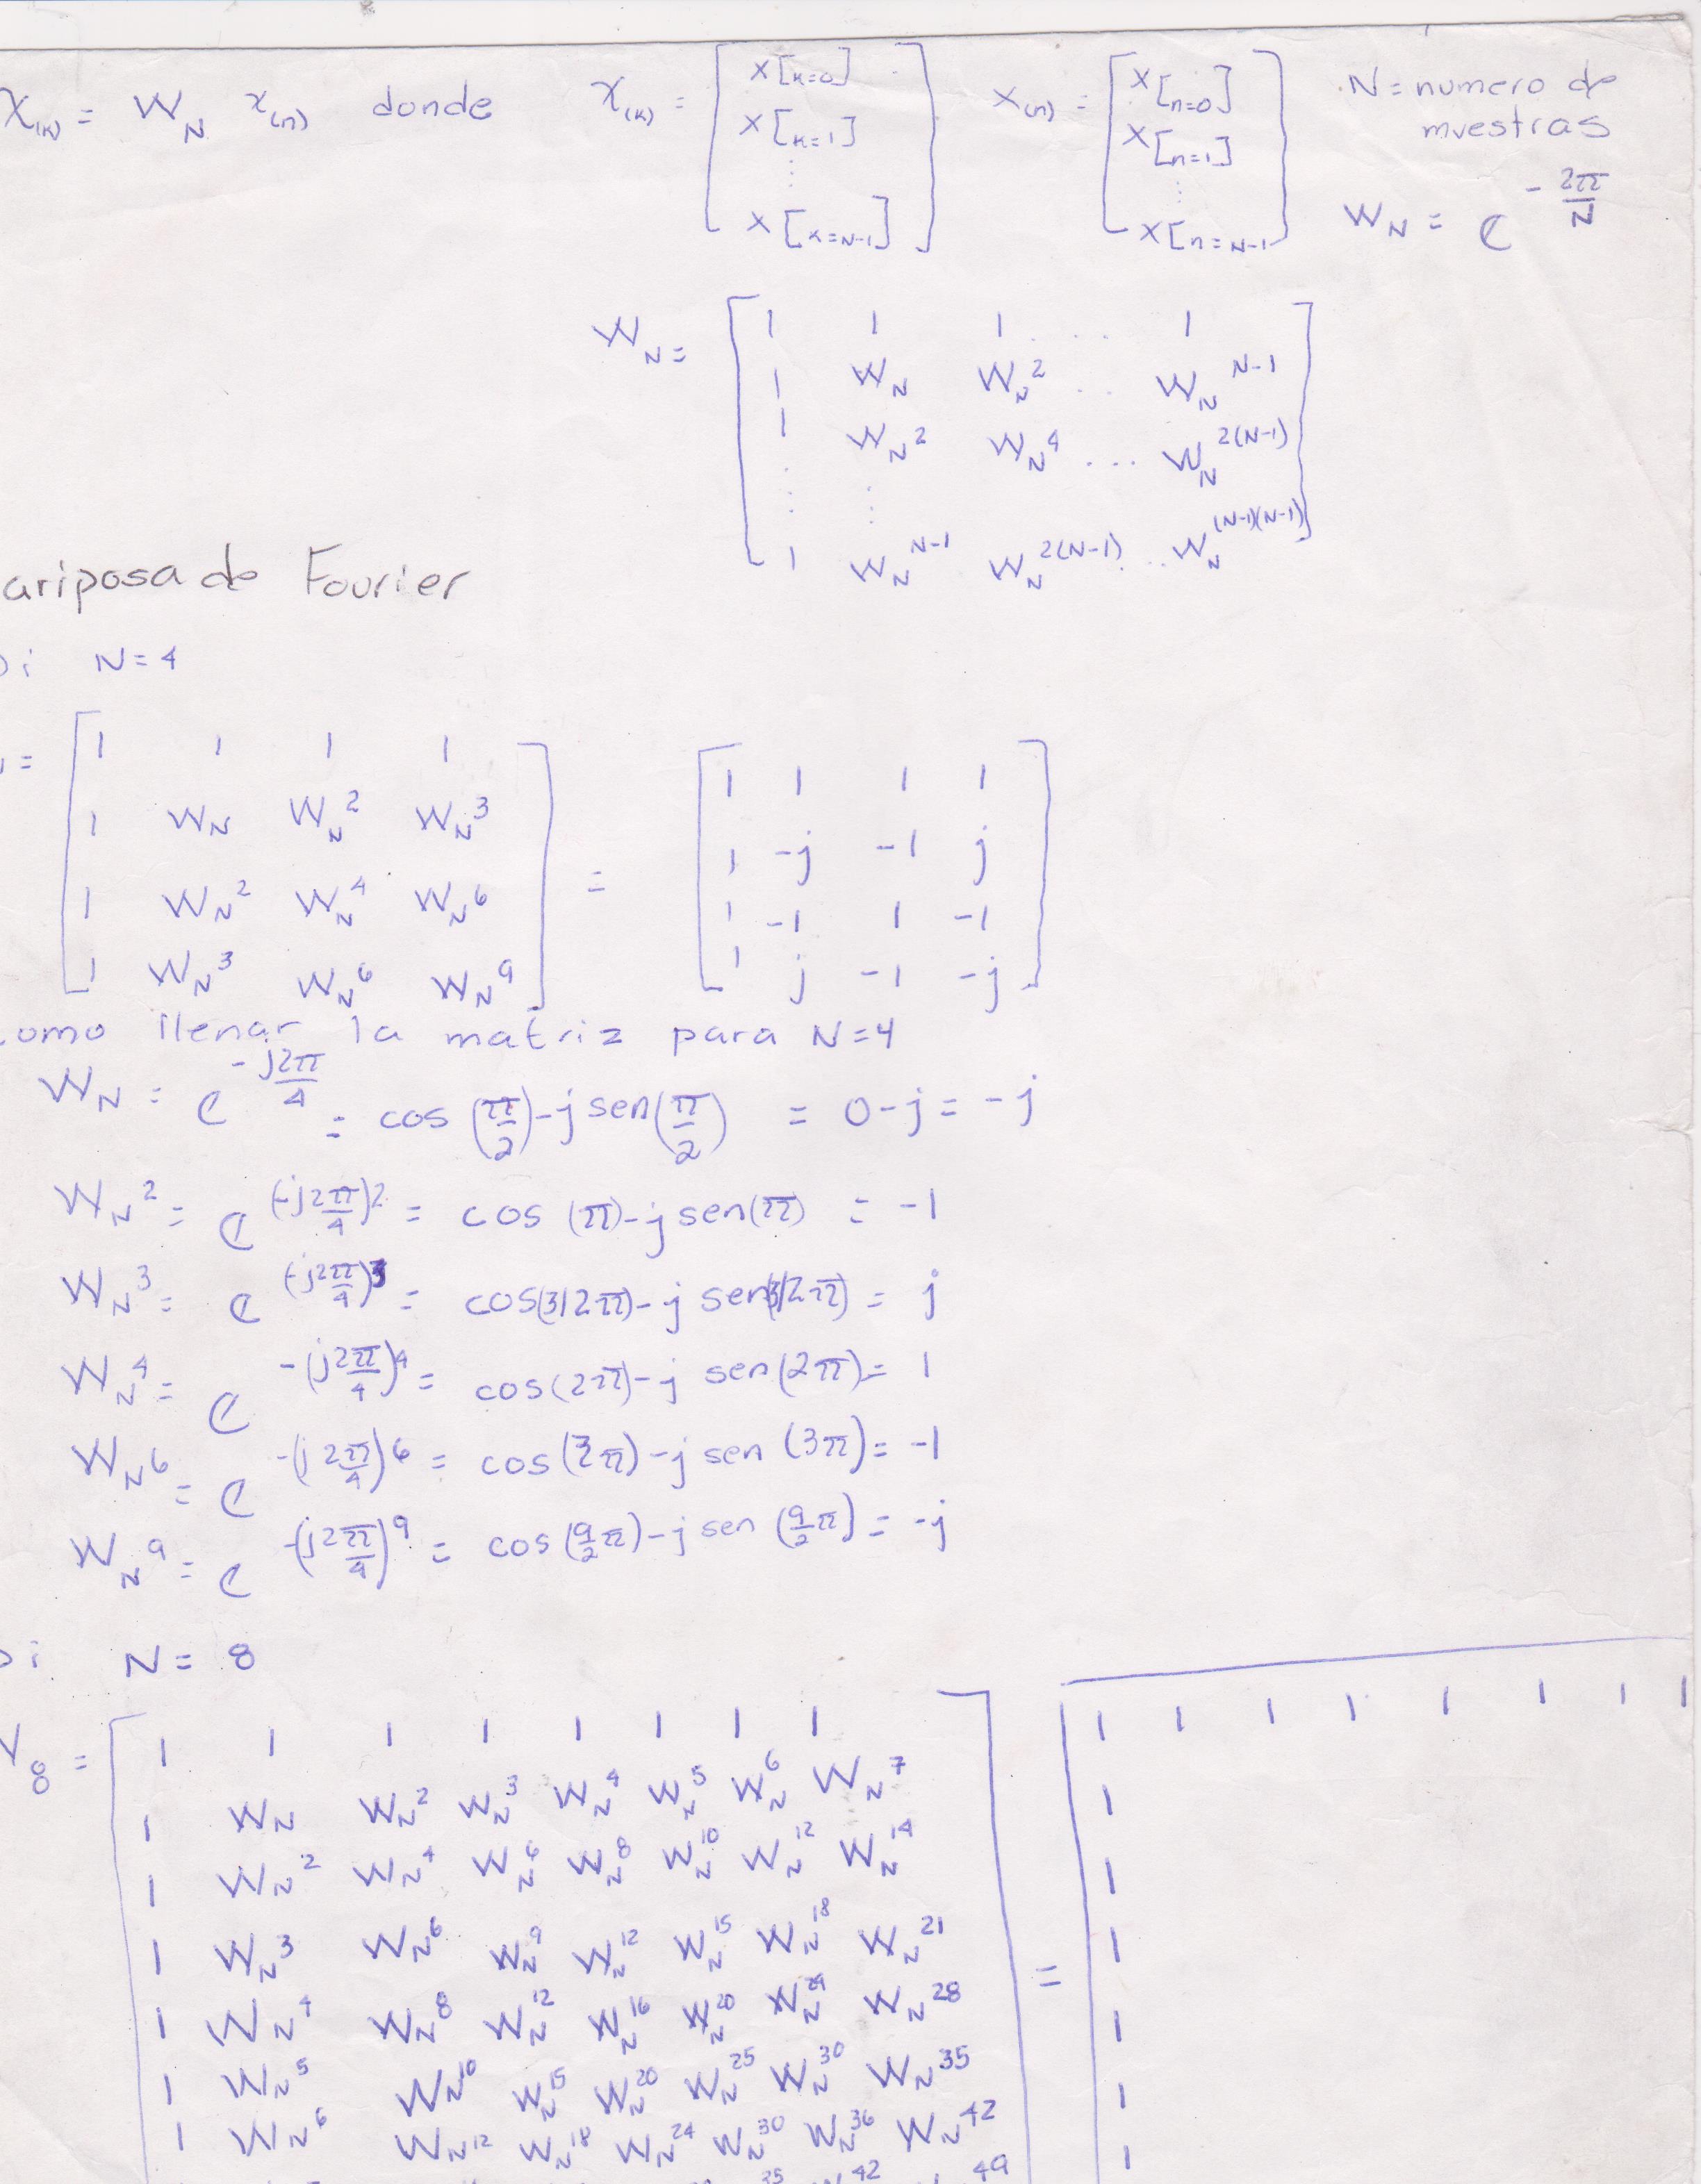 X(k) = W_N x(n) donde X(k) = [ X[k=0] X[k=1] ⋮ X[k=N-1] ] x(n) = [ X[n=0] X[n=1] ⋮ X[n=N-1 ] N = numero de muestras
W_N = e^{- 2π/N}
W_N = [ 1 1 1 . . . 1
1 W_N W_N^2 . . W_N^{N-1}
1 W_N^2 W_N^4 ... W_N^{2(N-1)}
⋮ ⋮
1 W_N^{N-1} W_N^{2(N-1)} .. W_N^{(N-1)(N-1)} ]
ariposa de Fourier
i N = 4
= [ 1 1 1 1 ] = [ 1 1 1 1 ]
1 W_N W_N^2 W_N^3 1 -j -1 j
1 W_N^2 W_N^4 W_N^6 1 -1 1 -1
1 W_N^3 W_N^6 W_N^9 1 j -1 -j
omo llenar la matriz para N=4
W_N = e^{-j2π/4} = cos (π/2) - j sen(π/2) = 0 - j = -j
W_N^2 = e^{(-j2π/4)2} = cos (π) - j sen(π) = -1
W_N^3 = e^{(-j2π/4)3} = cos(3/2π) - j sen(3/2π) = j
W_N^4 = e^{-(j2π/4)4} = cos(2π) - j sen(2π) = 1
W_N^6 = e^{-(j2π/4)6} = cos(3π) - j sen (3π) = -1
W_N^9 = e^{-(j2π/4)9} = cos(9/2π) - j sen (9/2π) = -j
i N = 8
8 = [ 1 1 1 1 1 1 1 1 ] = [ 1 1 1 1 1 1 1 1
1 W_N W_N^2 W_N^3 W_N^4 W_N^5 W_N^6 W_N^7 1
1 W_N^2 W_N^4 W_N^6 W_N^8 W_N^10 W_N^12 W_N^14 1
1 W_N^3 W_N^6 W_N^9 W_N^12 W_N^15 W_N^18 W_N^21 1
1 W_N^4 W_N^8 W_N^12 W_N^16 W_N^20 W_N^24 W_N^28 1
1 W_N^5 W_N^10 W_N^15 W_N^20 W_N^25 W_N^30 W_N^35 1
1 W_N^6 W_N^12 W_N^18 W_N^24 W_N^30 W_N^36 W_N^42 1
35 42 49